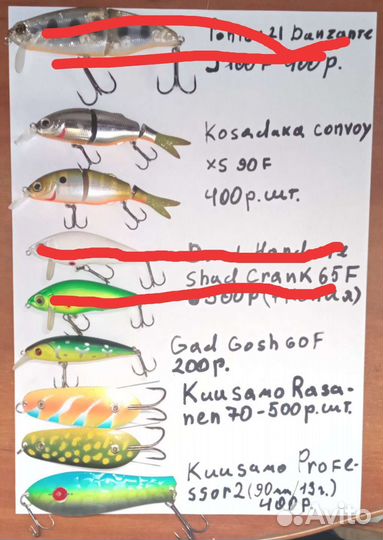 Pontoon 21 Danzante
J100F 400р.
Kosadaka convoy
XS 90F
400р.шт.
Shad Crank 65F
Gad Gosh 60F
200р.
Kuusamo Rasa-
nen 70-500р.шт.
Kuusamo Profe-
ssor2 (90мм/19г.)
400р.
Avito